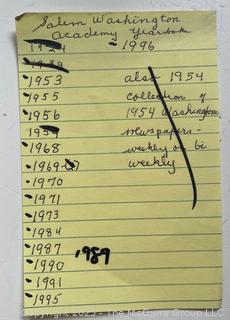 Salem Washington
Academy Yearbooks
1924
1996
1939
1953
1955
1956
1959
1968
1969-
1970
1971
1973
1984
1987
1990
1991
1995
also 1954
collection of
1954 Washington
newspapers -
weekly or bi
weekly
1989
Copyright 2023 - The McGuire Group LLC